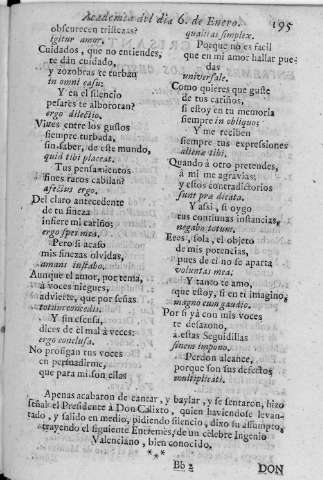 Academia del dia 6. de Enero. 195
obscurecen tristezas?
igitur amor.
Cuidados, que no entiendes,
te dán cuidado,
y zozobras te turban
in omni casu;
Y en el silencio
pesares te alborotan?
ergo dilectio.
Vives entre los gustos
siempre turbada,
sin saber, de este mundo,
quid tibi placeat.
Tus pensamientos
fines raros cabilan?
afectus ergo.
Del claro antecedente
de tu fineza
infiere mi cariño;
ergo spes mea.
Pero si acaso
mis finezas olvidas,
amani instabo.
Aunque el amor, por tema,
á voces niegues,
advierte, que por señas
totum concedis.
Y sin essensa,
dices de él mal á veces:
ergo conclusa.
No prosigan tus voces
en persuadirme,
que para mi son ellas
qualitas simplex.
Porque no es facil
que en mi amor hallar puedas
universale.
Como quieres que guste
de tus cariños,
si estoy en tu memoria
siempre in obliquo;
Y me reciben
siempre tus expressiones
alienæ tibi.
Quando á otro pretendes,
á mi me agravias;
y estos contradictorios
sunt præ dicata.
Y assi, si oygo
tus continuas instancias,
negabo totum.
Eres, sola, el objeto
de mis potencias,
pues de él no se aparta
voluntas mea.
Y tanto te amo,
que estoy, si en ti imagino,
magno cum gaudio.
Por si yá con mis voces
te desazono,
á estas Seguidillas
finem impono.
Perdon alcance,
porque son sus defectos
multiplicati.
Apenas acabaron de cantar, y baylar, y se sentaron, hizo
señal el Presidente à Don Calixto, quien haviendose levan-
tado, y salido en medio, pidiendo silencio, dixo su assumpto,
trayendo el siguiente Entremés, de un célebre Ingenio
Valenciano, bien conocido.
***
Bb 2 DON